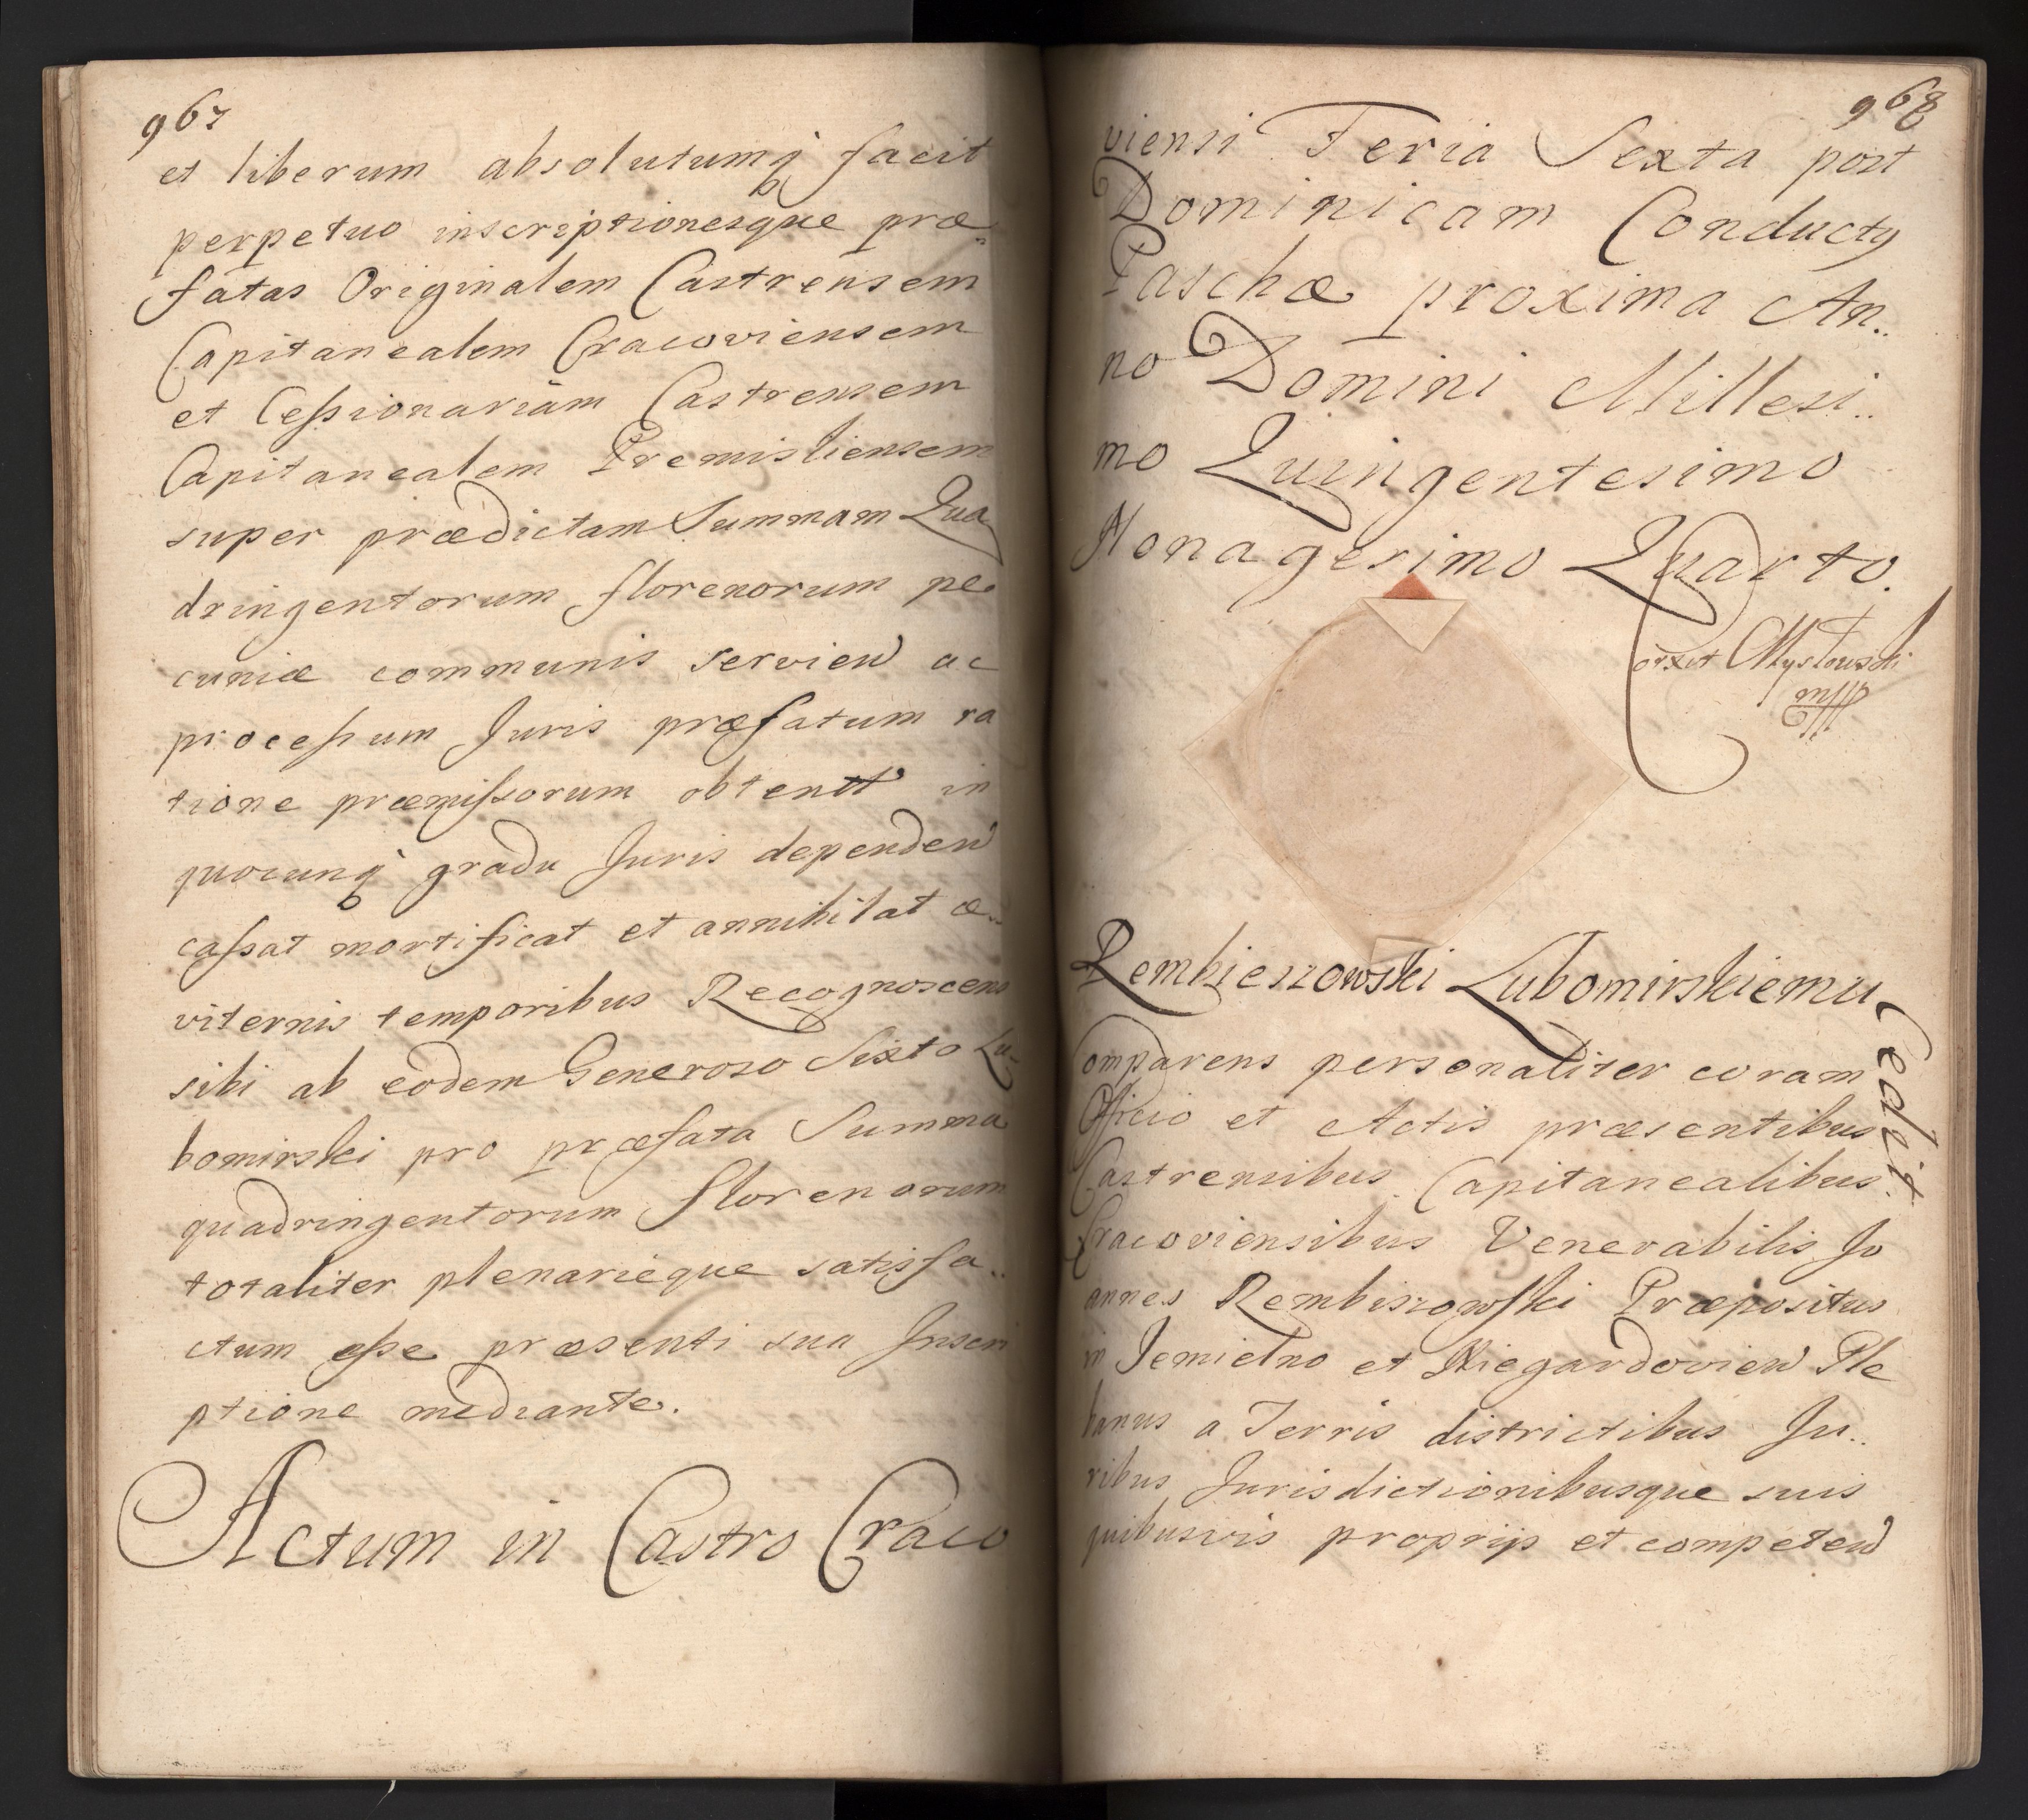 967
et liberum absolutumq facit
perpetuo inscriptionesque præ
fatas Originalem Castrensem
Capitanealem Cracoviensem
et Cessionariam Castrensem
Capitanealem Premisliensem
super prædictam Summam Qua
dringentorum florenorum pe
cuniæ communis servien ac
processum Juris præfatum ra
tione præmissorum obtentt in
quocunq gradu Juris dependen
cassat mortificat et annihilat æ..
viternis temporibus Recognoscens
sibi ab eodem Generoso Sixto Lu-
bomirski pro præfata Summa
quadringentorum florenorum
totaliter plenarieque satisfa..
ctum esse præsenti sua Inscri
ptione mediante.
Actum in Castro Craco
968
viensi Feria Sexta post
Dominicam Conductus
Paschæ proxima An..
no Domini Millesi..
mo Quingentesimo
Nonagesimo Quarto.
Rembieszowski Lubomirskiemu
Cedit
Comparens personaliter coram
Officio et Actis præsentibus
Castrensibus Capitanealibus
Cracoviensibus Venerabilis Jo
annes Rembiszowski Præpositus
in Jemielno et Niegardovien Ple
banus a Terris districtibus Ju..
ribus Jurisdictionibusque suis
quibusvis proprijs et competen